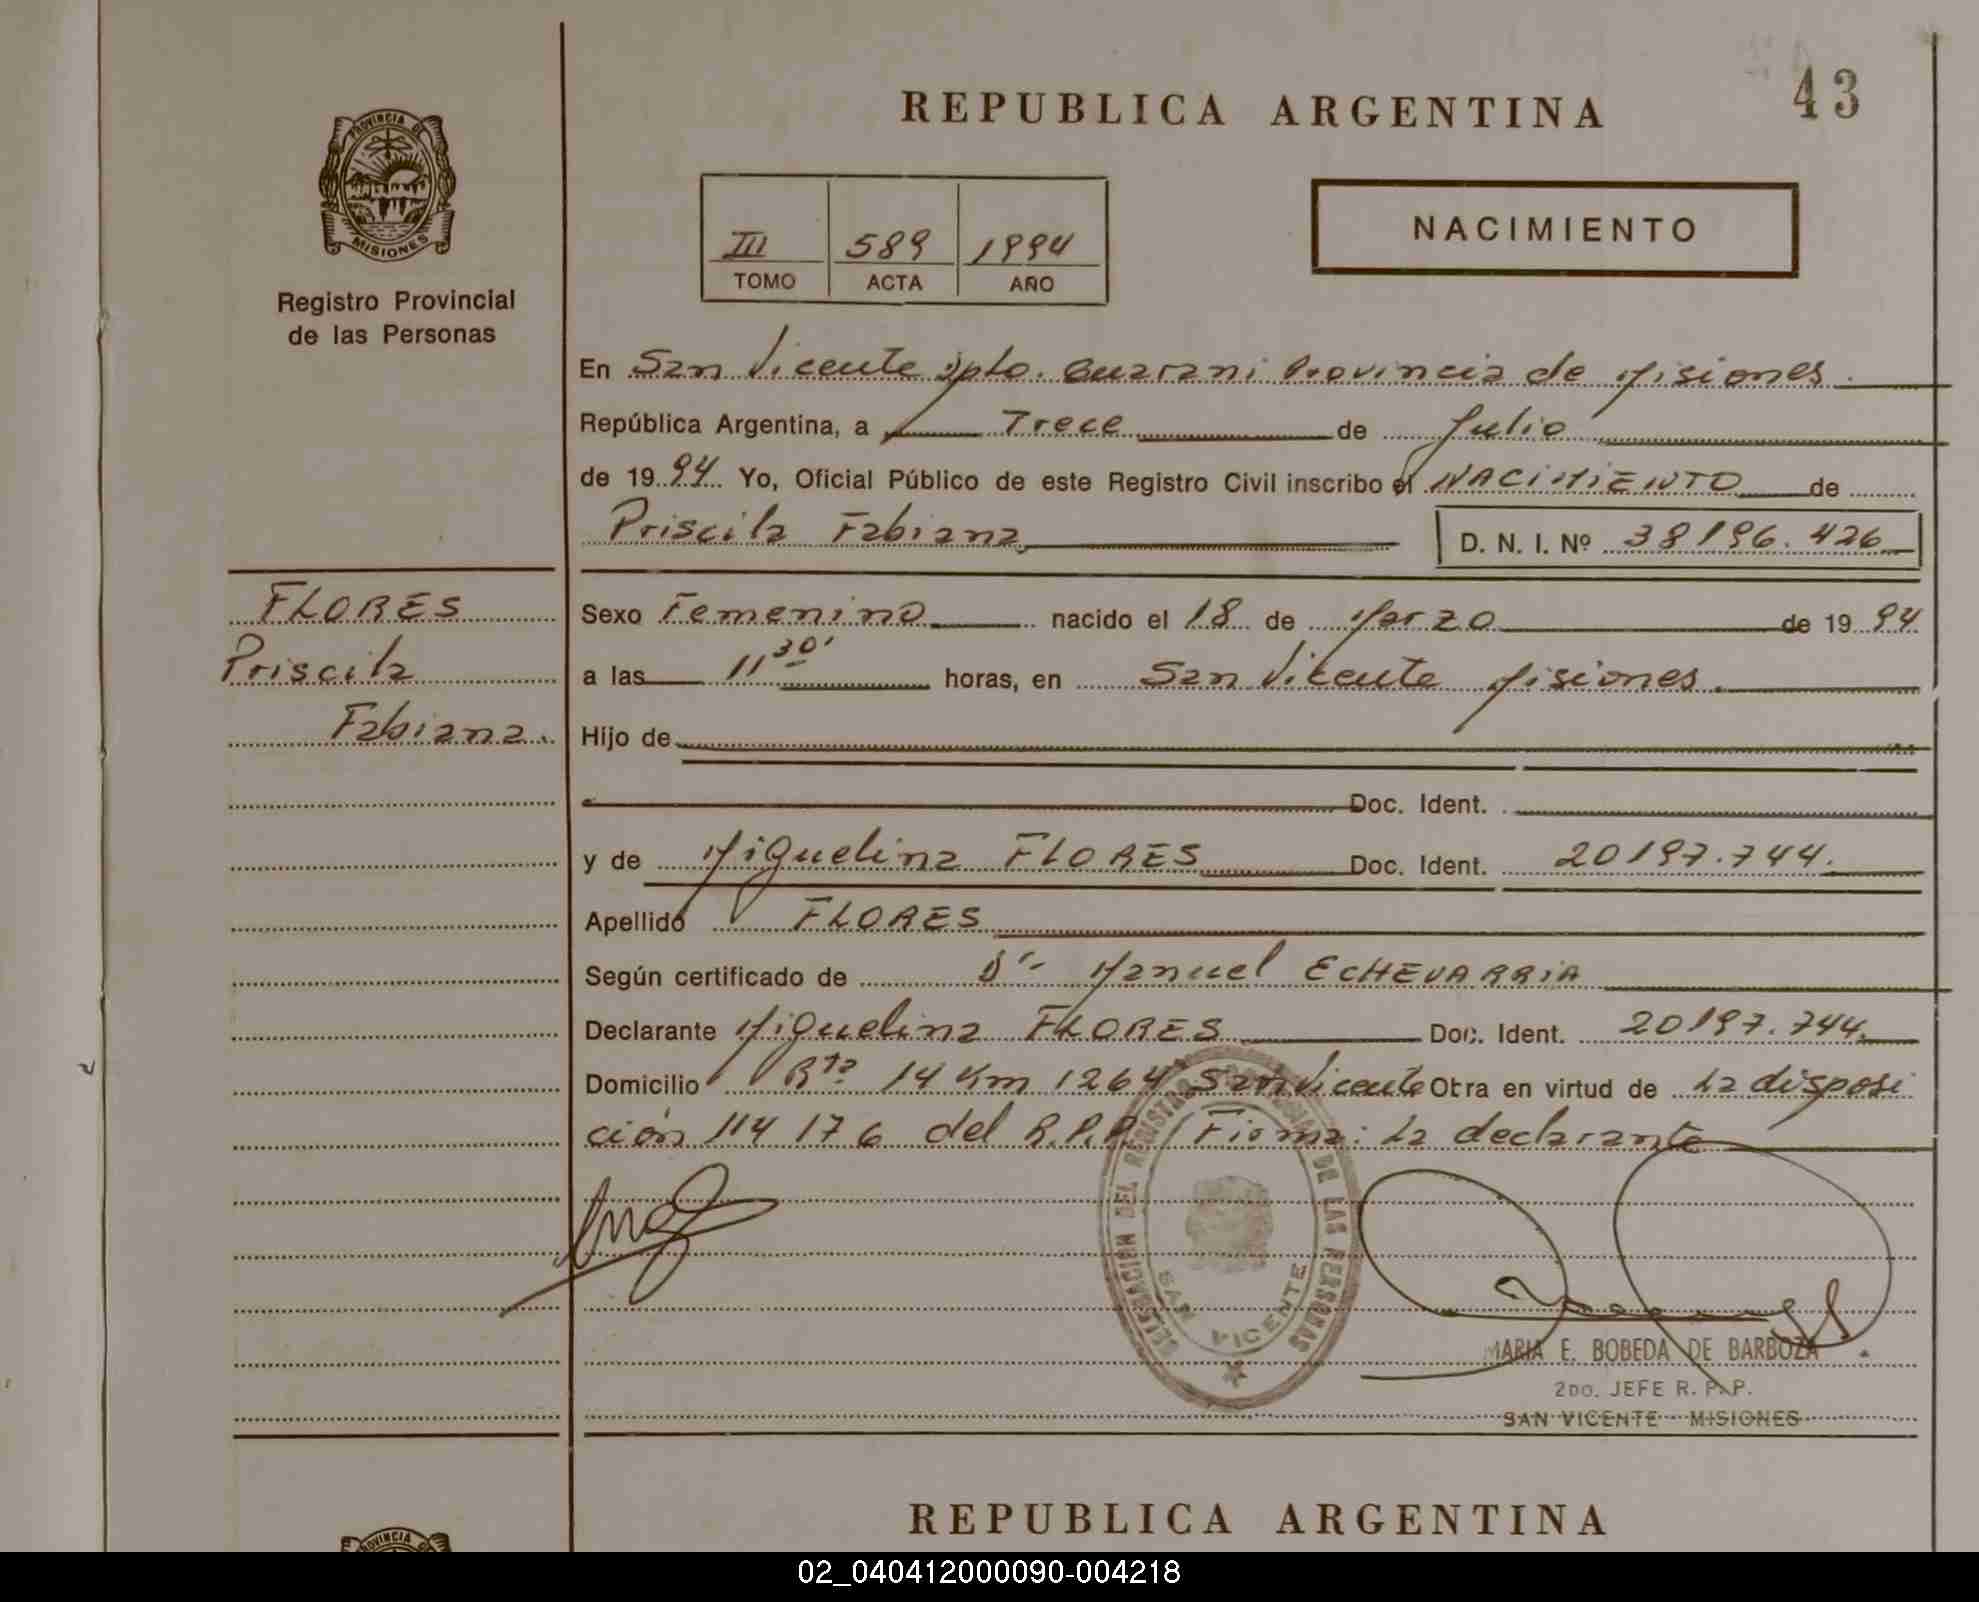 43
REPUBLICA ARGENTINA
PROVINCIA DE
MISIONES
Registro Provincial
de las Personas
III 589 1994
TOMO ACTA AÑO
NACIMIENTO
En San Vicente Dpto. Guarani Provincia de Misiones
República Argentina, a Trece de Julio
de 1994 Yo, Oficial Público de este Registro Civil inscribo el NACIMIENTO de
Priscila Fabiana D. N. I. Nº 38196.426
FLORES
Priscila
Fabiana.
Sexo Femenino nacido el 18 de Marzo de 1994
a las 11 30' horas, en San Vicente Misiones.
Hijo de
Doc. Ident.
y de Miguelina FLORES Doc. Ident. 20197.744.
Apellido FLORES
Según certificado de Dr Manuel ECHEVARRIA
Declarante Miguelina FLORES Doc. Ident. 20197.744.
Domicilio Rta 14 Km 1264 San Vicente Otra en virtud de La disposi
ción 114 176 del R.P.P. Firma: La declarante
DELEGACION DEL REGISTRO PROVINCIAL DE LAS PERSONAS
SAN VICENTE
MARIA E. BOBEDA DE BARBOZA
2DO. JEFE R. P. P.
SAN VICENTE - MISIONES
REPUBLICA ARGENTINA
PROVINCIA DE
02_040412000090-004218